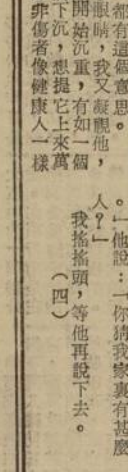 都有這個意思。
眼睛，我又凝視他，
開始沉重，有如一個
下沉，想提它上來萬
非傷者像健康人一樣
。」他說：「你猜我家裏有甚麼
人？」
我搖搖頭，等他再說下去。
（四）